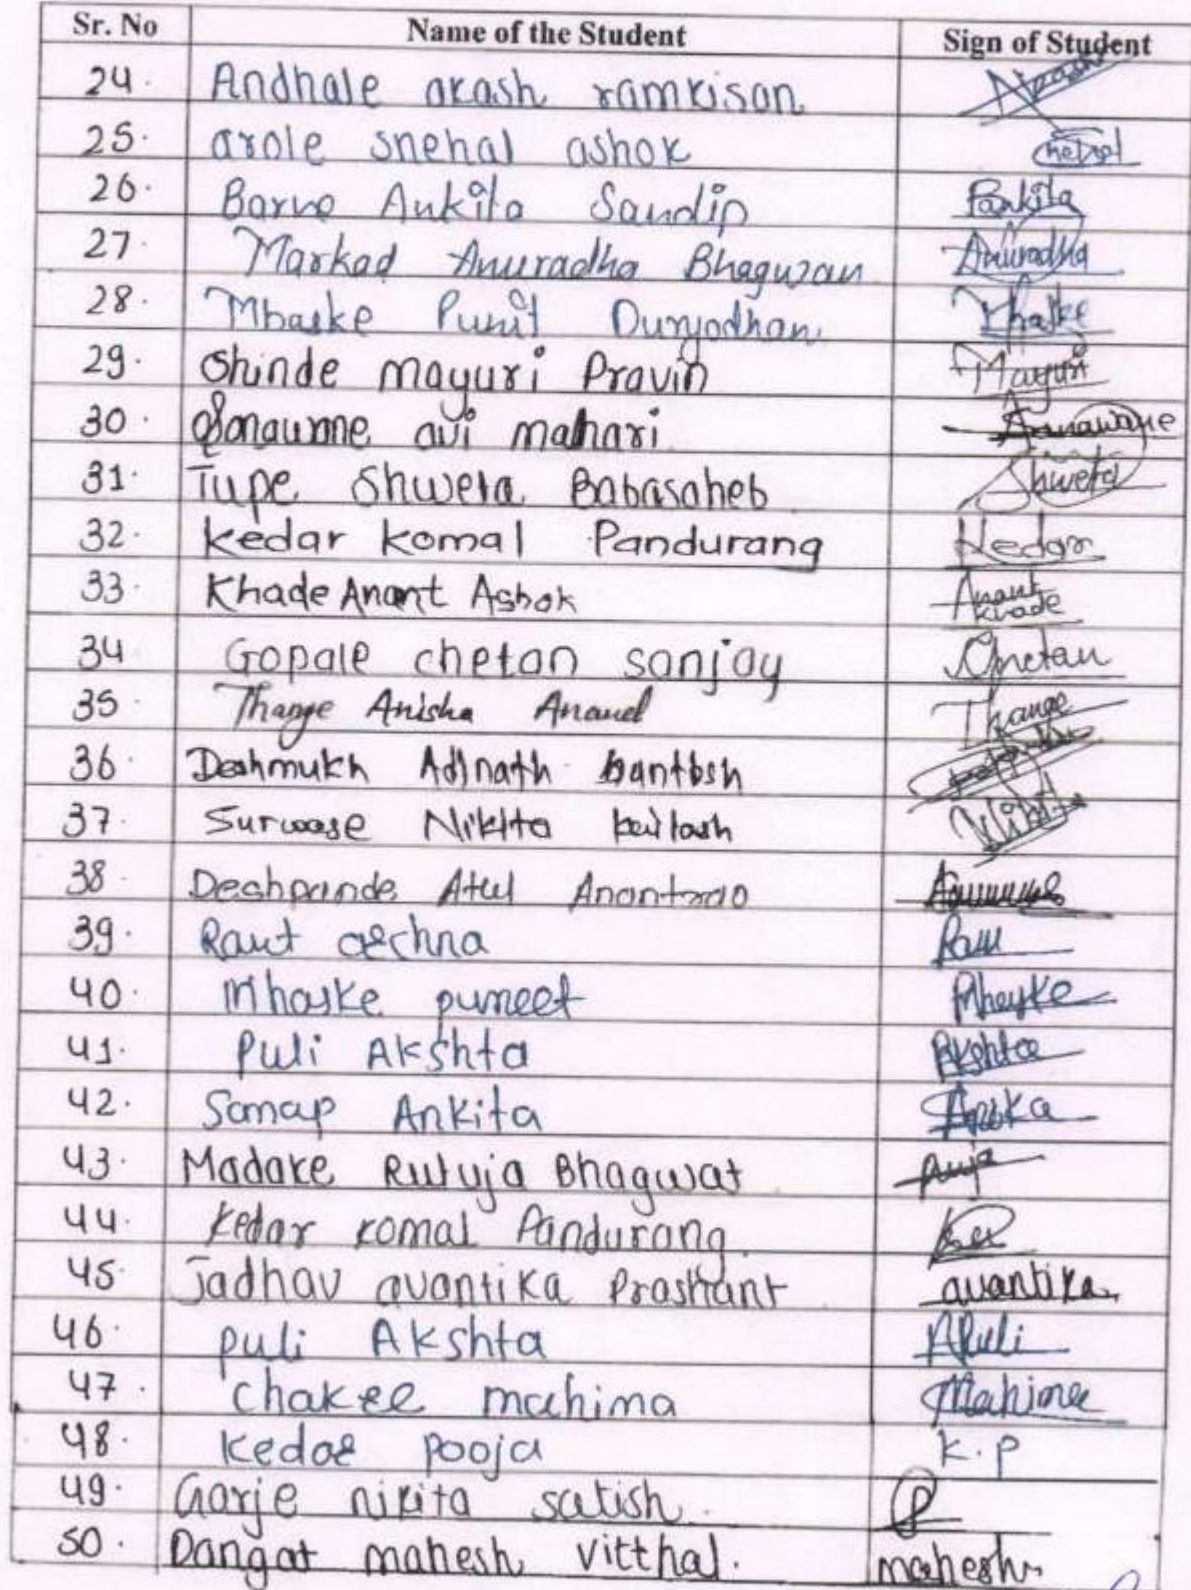 Sr. No Name of the Student Sign of Student
24. Andhale akash ramkisan Akash
25. arole snehal ashok Snehal
26. Barve Ankita Sandip Ankita
27. Markad Anuradha Bhagwan Anuradha
28. Mhaske Punit Duryodhan Mhaske
29. Shinde mayuri Pravin Mayuri
30. Sonawane avi malhari Sonawane
31. Tupe Shweta Babasaheb Shweta
32. kedar komal Pandurang Kedar
33. Khade Anant Ashok Anant Khade
34 Gopale chetan sanjay Chetan
35. Thange Anisha Anand Thange
36. Deshmukh Adinath Santosh
37. Surwase Nikita kailash Nikita
38. Deshpande Atul Anantrao
39. Raut archna Raut
40. Mhaske puneet Mhaske
41. Puli Akshta Akshta
42. Sanap Ankita
43. Madake Rutuja Bhagwat
44. Kedar komal Pandurang
45. Jadhav avantika Prashant avantika
46. puli Akshta APuli
47. chakre mahima Mahima
48. Kedar pooja K.P
49. Garje nikita satish.
50. Dangat mahesh vitthal. mahesh